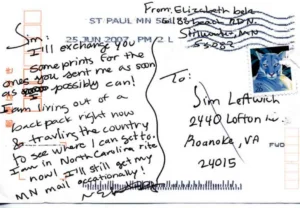 From, Elizabeth
ST PAUL MN 551
25 JUN 2007 PM 2 L
Stillwater, MN
55082
Jim:
I'll exchange you
some prints for the
ones you sent me as soon
as possibly can!
I am living out of a
backpack right now
& travling the country
to see where I can get to.
I am in North Carolina rite
now! I'll still get my
MN mail occationally!
To:
Jim Leftwich
2440 Lofton
Roanoke, VA
24015
FWD